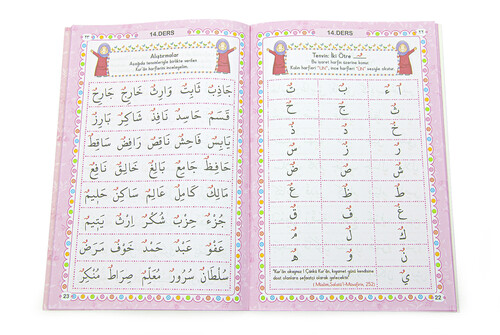 14.DERS
Tenvin: İki Ötre
Bu işaret harfin üzerine konur.
Kalın harfleri "Un", ince harfleri "Ün" sesiyle okutur.
اٌ ءٌ بٌ تٌ
ثٌ جٌ حٌ
خٌ دٌ ذٌ
رٌ زٌ سٌ
شٌ صٌ ضٌ
طٌ ظٌ عٌ
غٌ فٌ قٌ
كٌ لٌ مٌ
نٌ وٌ هٌ
"Kur'ân okuyunuz ! Çünkü Kur'ân, kıyamet günü kendisine
dost olanlara şefaatçi olarak gelecektir."
يٌ
22
14.DERS
Alıştırmalar
Aşağıda tenvinleriyle birlikte verilen
Kur'ân harflerini inceleyelim.
جَاذِبٌ ثَابِتٌ وَارِثٌ خَارِجٌ جَارِحٌ
قَسَمٌ حَاسِدٌ نَافِذٌ شَاكِرٌ بَارِزٌ
يَابِسٌ فَاحِشٌ نَاقِصٌ رَافِضٌ سَاقِطٌ
حَافِظٌ جَامِعٌ بَالِغٌ خَالِقٌ نَافِعٌ
مَالِكٌ كَامِلٌ عَالِمٌ سَاكِنٌ حَلِيمٌ
جُزْءٌ حِزْبٌ شُكْرٌ اِرْثٌ يَتِيمٌ
عَفْوٌ عَبْدٌ حَمْدٌ خَوْفٌ مَرَضٌ
سُلْطَانٌ سُرُورٌ مُعَلِّمٌ صِرَاطٌ مُنْكِرٌ
23